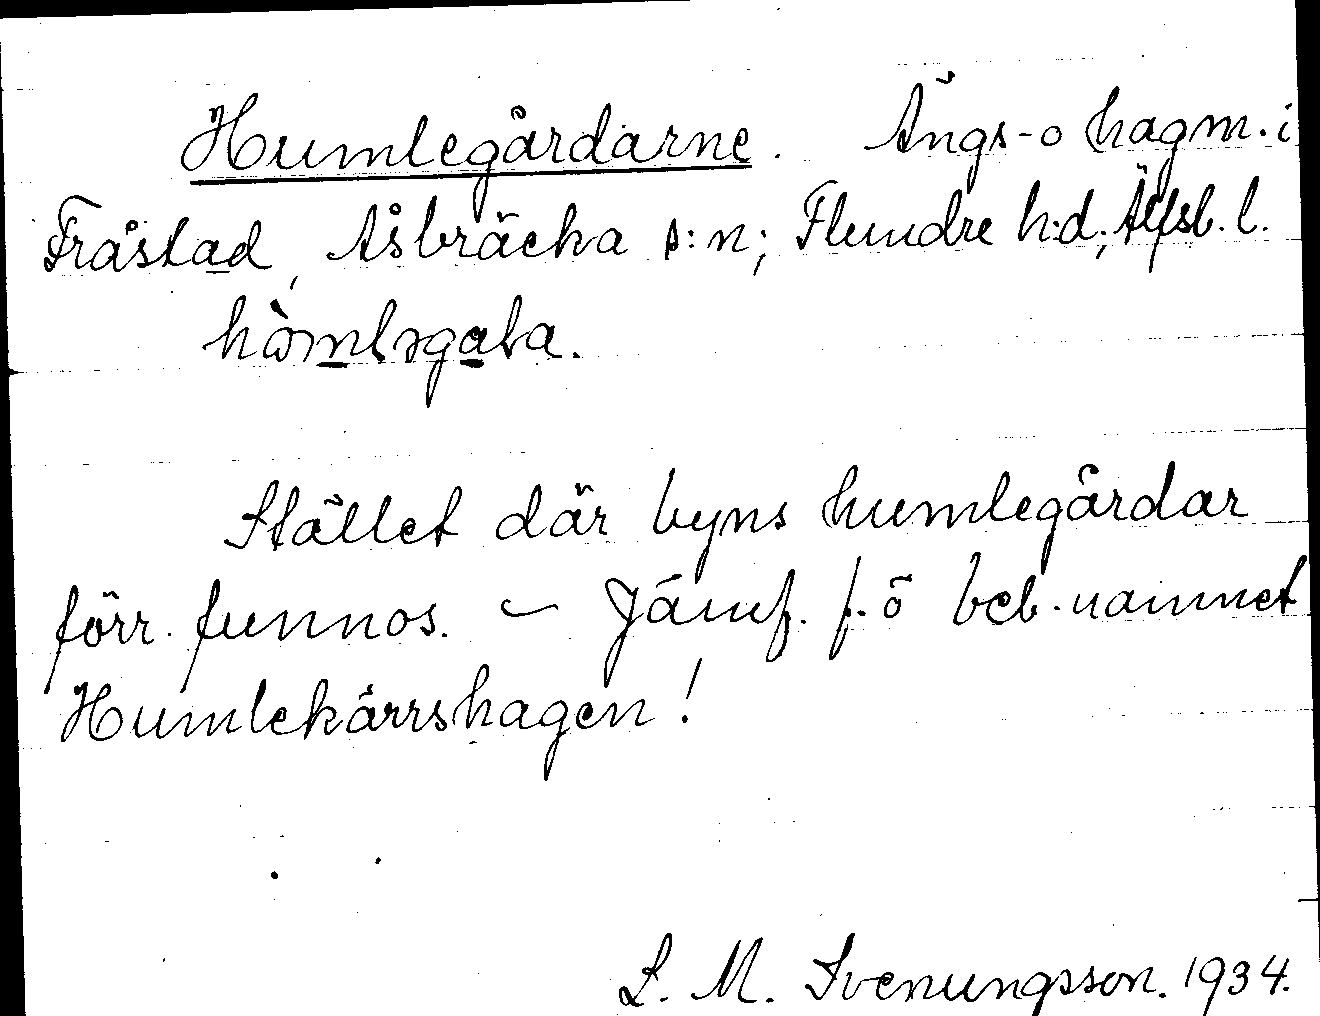 Humlegårdarne. Ängs-o hagm. i
Fråstad, Åsbräcka s:n; Flundre h:d; Älfsb. l.
hòmləgaɫa.
Stället där byns humlegårdar
förr funnos. – Jämf. f. ö beb. namnet
Humlekärrshagen!
L. M. Svenungsson. 1934.